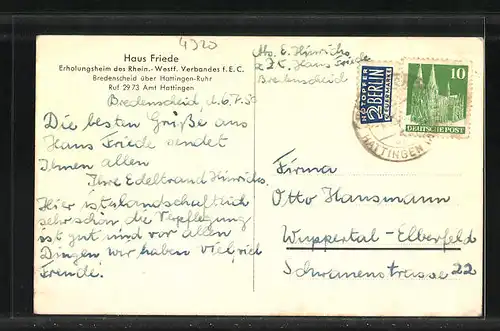 4320
Haus Friede
Erholungsheim des Rhein.-Westf. Verbandes f. E. C.
Bredenscheid über Hattingen-Ruhr
Ruf 2973 Amt Hattingen
Bredenscheid, d. 6.7.50
Die besten Grüße aus
Haus Friede sendet
Ihnen allen
Ihre Edeltraud Hinrichs.
Hier ist landschaftlich
sehr schön die Verpflegung
ist gut und vor allen
Dingen, wir haben viel, viel
Freude.
Abs. E. Hinrichs
z. Z. Haus Friede
Bredenscheid
NOTOPFER
2 BERLIN
STEUERMARKE
10
DEUTSCHE POST
HATTINGEN
Firma
Otto Hausmann
Wuppertal-Elberfeld
22